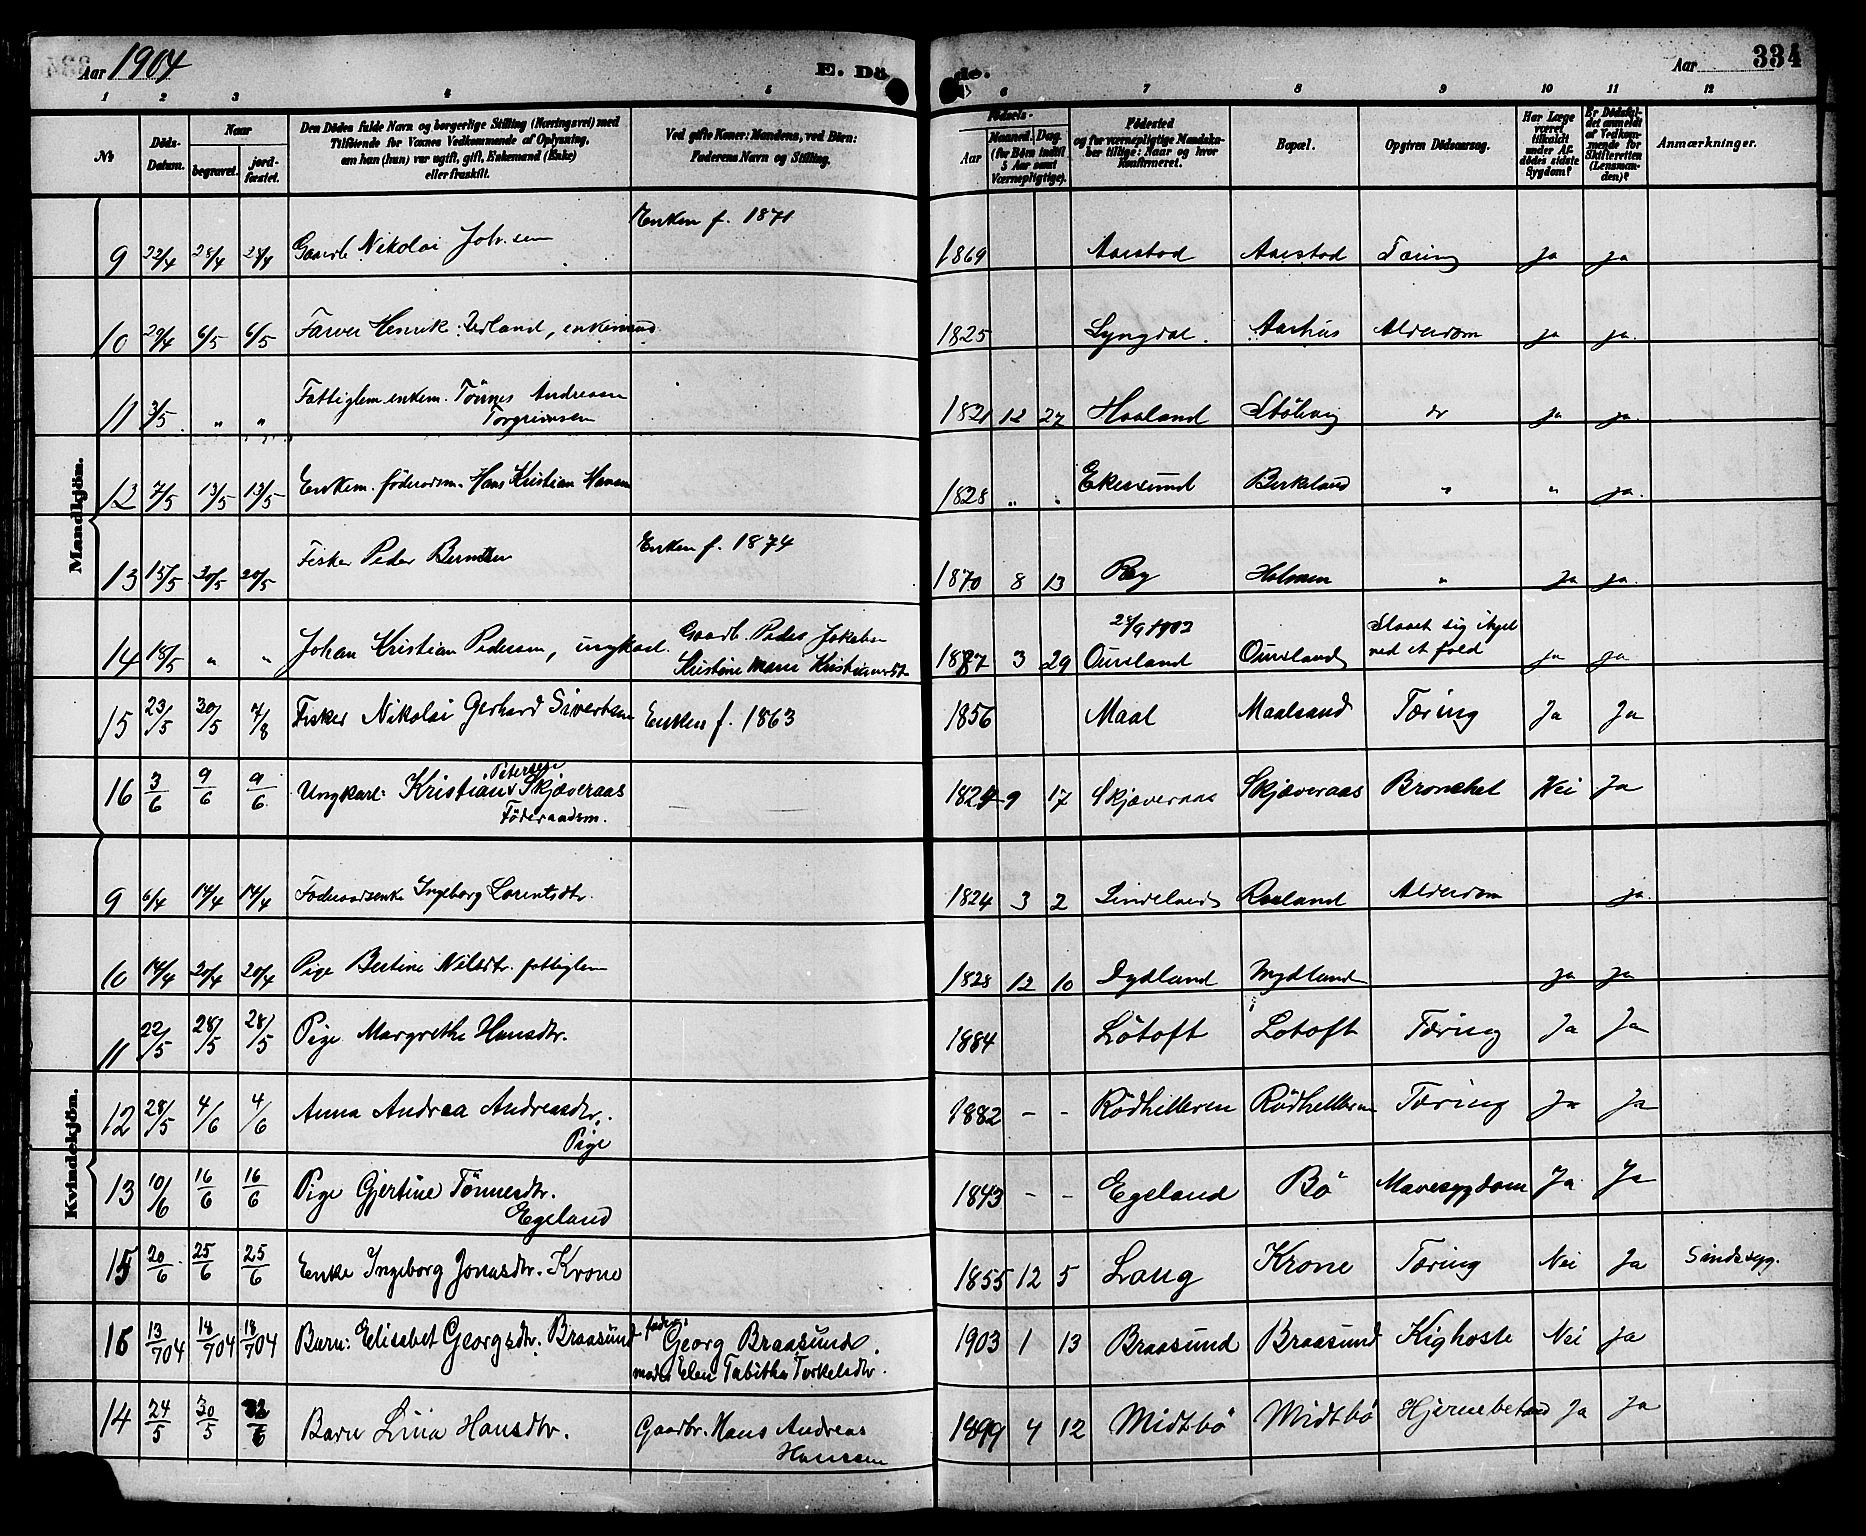 Aar 1904
E. Dö de.
Aar
334
1 2 3 4 5 6 7 8 9 10 11 12
№
Döds-Datum.
Naar
begravet.
jord-fæstet.
Den Dödes fulde Navn og borgerlige Stilling (Næringsvei) med
Tilföiende for Voxnes Vedkommende af Oplysning,
om han (hun) var ugift, gift, Enkemand (Enke)
eller fraskilt.
Ved gifte Koner: Mandens, ved Börn:
Faderens Navn og Stilling.
Födsels-
Aar
Maaned. Dag.
(for Börn indtil
5 Aar samt
Værnepligtige).
Födested
og for værnepligtige Mandska-
ber tillige: Naar og hvor
Konfirmeret.
Bopæl.
Opgiven Dödsaarsag.
Har Læge
været
tilkaldt
under Af-
dödes sidste
Sygdom?
Er Dödsfal-
det anmeldt
af Vedkom-
mende for
Skifteretten
(Lensman-
den)?
Anmærkninger.
Mandkjön.
9 22/4 28/4 28/4 Gaardb Nikolai Johnsen Enken f. 1871 1869 Aarstad Aarstad Tæring ja ja
10 29/4 6/5 6/5 Farver Henrik Urland, enkemand 1825 Lyngdal. Aarhus Alderdom ja ja.
11 3/5 " " Fattiglem enkem. Tönnes Andreasen
Torgrimsen 1821 12 27 Haaland Stölsvig do ja ja.
12 7/5 13/5 13/5 Enkem. föderaadsm. Hans Kristian Hansen 1828 " " Ekersund Birkeland " " ja.
13 15/5 20/5 20/5 Fisker Peder Berntsen Enken f. 1874 1870 8 13 Reg Holmen " ja ja.
14 18/5 " " Johan Kristian Pedersen, ungkarl. Gaardb. Peder Jakobsen
Kristine Marie Kristiansdt. 1887 3 29 28/9 1902
Ounsland Ounsland Slaaet sig ihjel
ved et fald ja ja
15 23/5 30/5 7/8 Fisker Nikolai Gerhard Sivertsen Enken f. 1863 1856 Maal Maalsand Tæring Ja Ja
16 3/6 9/6 9/6 Ungkarl: Kristian Petersen Skjæveraas
Föderaadsm. 1824 9 17 Skjæveraas Skjæveraas Bronchet Nei Ja
Kvindekjön.
9 6/4 14/4 14/4 Föderaadsenke Ingeborg Lorentsdtr. 1824 3 2 Lindeland Roeland Alderdom ja.
10 14/4 20/4 20/4 Pige Bertine Nilsdtr. fattiglem 1828 12 10 Dydland Mydland ja ja
11 22/5 28/5 28/5 Pige Margrethe Hansdtr. 1884 Lötoft Lotoft Tæring Ja Ja
12 28/5 4/6 4/6 Anna Andrea Andreasdtr.
Pige 1882 - - Rödhelleren Rödhelleren Tæring Ja Ja
13 10/6 16/6 16/6 Pige Gjertine Tönnesdtr.
Egeland 1843 - - Egeland Bö Mavesygdom Ja Ja
15 20/6 25/6 25/6 Enke Ingeborg Jonasdtr. Krone 1855 12 5 Laug Krone Tæring Nei Ja Sindssyg.
16 13/7 04 18/7 04 18/7 04 Barn: Elisabet Georgsdtr. Braasund fader:
Georg Braasund.
moder Elen Tabitha Torkelsdtr. 1903 1 13 Braasund Braasund Kighoste Nei ja
14 24/5 30/5 Barn Lina Hansdtr. Gaardbr. Hans Andreas
Hanssen 1899 4 12 Midtbö Midtbö Hjernebetænd Ja Ja